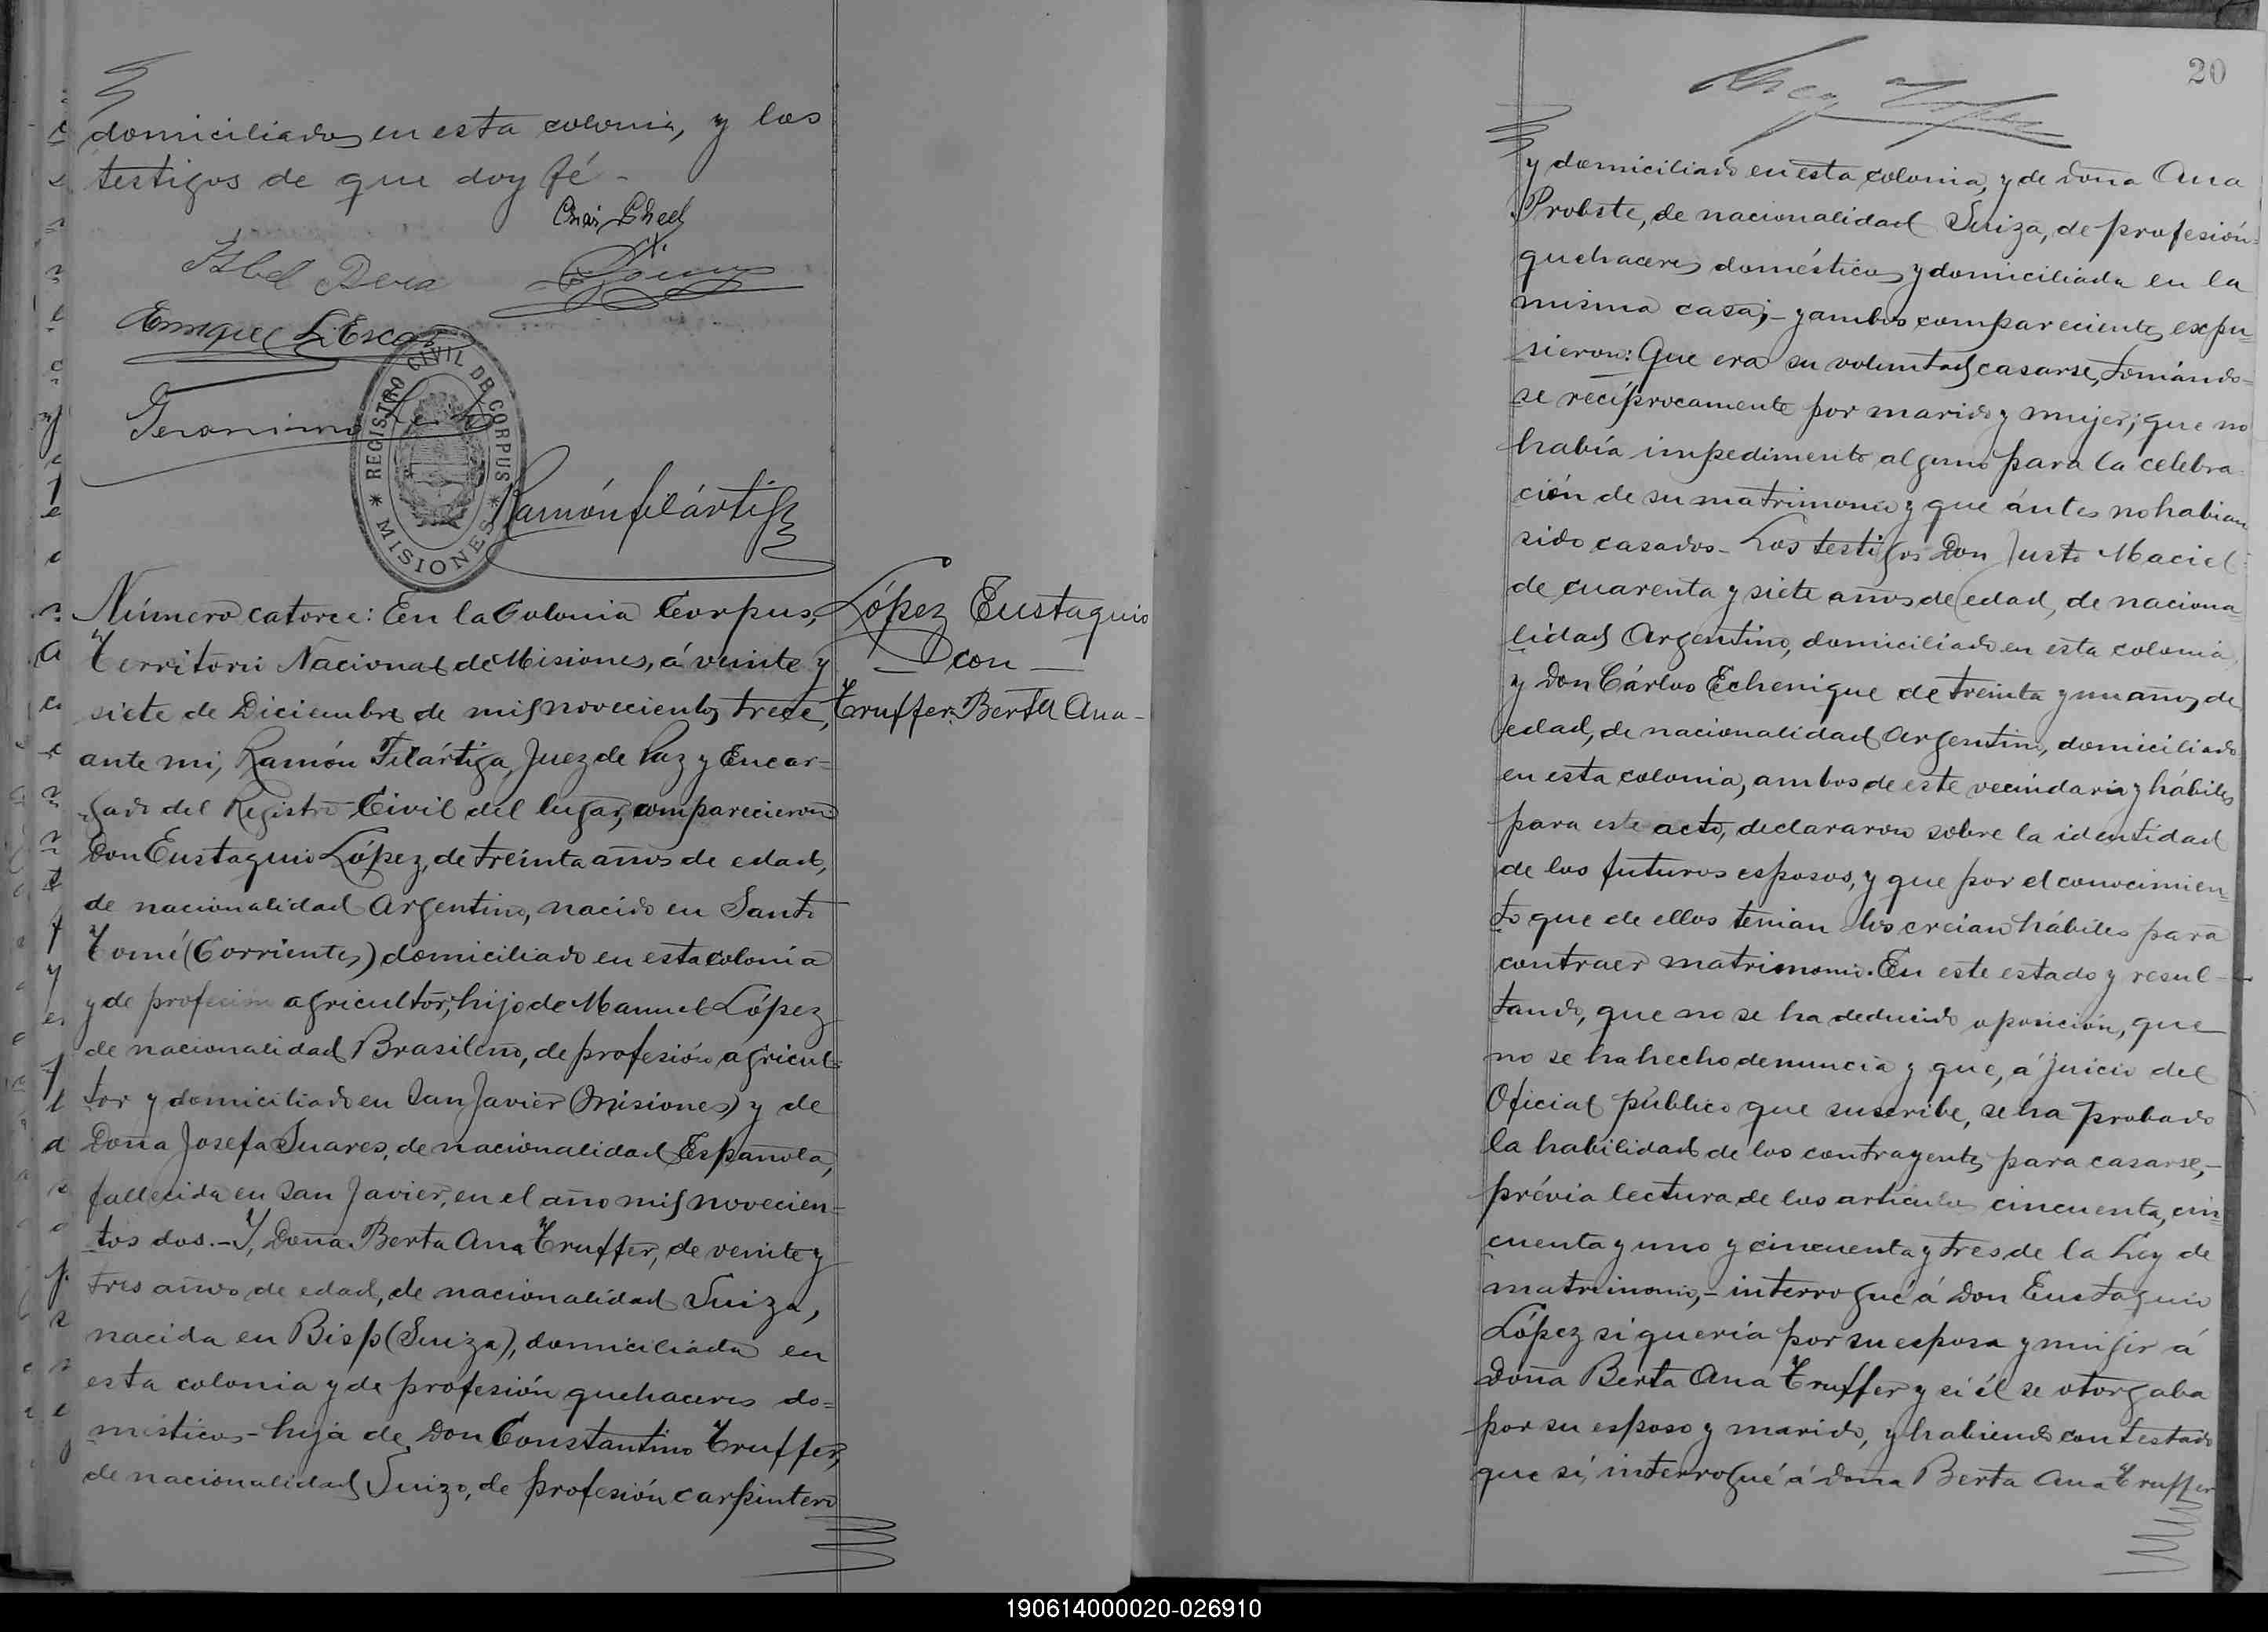 domiciliados en esta colonia, y los
testigos de que doy fé-
Abel Dera
Enrique L. Escar
Geronimo
REGISTRO CIVIL DE CORPUS
* MISIONES *
Ramón Filártiga
Número catorce: En la Colonia Corpus,
Territorio Nacional de Misiones, á veinte y
siete de Diciembre de mil novecientos trece,
ante mi, Ramón Filártiga, Juez de Paz y Encar=
gado del Registro Civil del lugar, comparecieron
Don Eustaquio López, de treinta años de edad,
de nacionalidad Argentino, nacido en Santo
Tomé (Corrientes) domiciliado en esta colonia
y de profesión agricultor; hijo de Manuel López
de nacionalidad Brasileño, de profesión agricul-
tor y domiciliado en San Javier (Misiones) y de
Doña Josefa Suares, de nacionalidad Española,
fallecida en San Javier, en el año mil novecien-
tos dos.- Y, Doña Berta Ana Truffer, de veinte y
tres años de edad, de nacionalidad Suiza,
nacida en Bisp (Suiza), domiciliada en
esta colonia y de profesión quehaceres do=
mésticos- hija de Don Constantino Truffer,
de nacionalidad Suizo, de profesión carpintero
López Eustaquio
- con -
Truffer Berta Ana-
20
y domiciliado en esta colonia, y de doña Ana
Probste, de nacionalidad Suiza, de profesión
quehaceres domésticos y domiciliada en la
misma casa;- y ambos comparecientes expu=
sieron: Que era su voluntad casarse, tomándo-
se recíprocamente por marido y mujer; que no
había impedimento alguno para la celebra-
ción de su matrimonio y que ántes no habian
sido casados- Los testigos Don Justo Maciel
de cuarenta y siete años de edad, de naciona
lidad Argentino, domiciliado en esta colonia,
y Don Cárlos Echenique de treinta y un años de
edad, de nacionalidad Argentino, domiciliado
en esta colonia, ambos de este vecindario y hábiles
para este acto, declararon sobre la identidad
de los futuros esposos, y que por el conocimien-
to que de ellos tenian los creian hábiles para
contraer matrimonio. En este estado y resul-
tando, que no se ha deducido oposición, que
no se ha hecho denuncia y que, á juicio del
Oficial público que suscribe, se ha probado
la habilidad de los contrayentes para casarse,-
prévia lectura de los artículos cincuenta, cin
cuenta y uno y cincuenta y tres de la Ley de
matrimonio,- interrogué á Don Eustaquio
López si queria por su esposa y mujer á
Doña Berta Ana Truffer y si él se otorgaba
por su esposo y marido, y habiendo contestado
que si, interrogué á doña Berta Ana Truffer